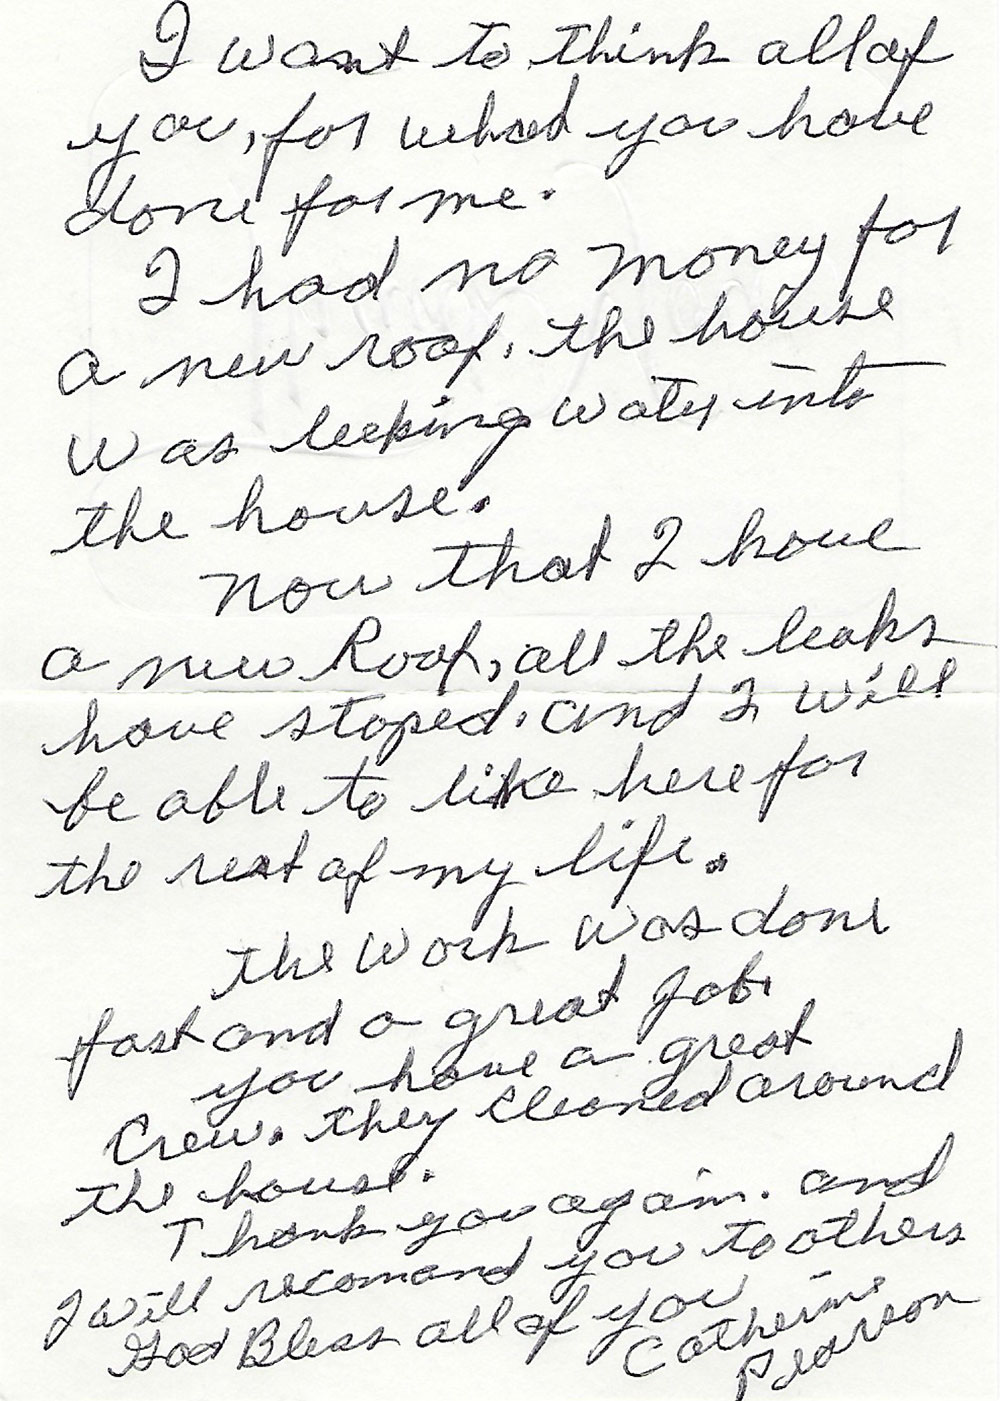 I want to think all of
you, for what you have
done for me.
I had no money for
a new roof. the house
was leeking water into
the house.
Now that I have
a new Roof, all the leaks
have stoped. and I will
be able to like here for
the rest of my life.
the work was done
fast and a great job.
you have a great
Crew. they cleaned around
the house.
Thank you again. and
I will recomand you to others
God Bless all of you
Catherine
Pearson